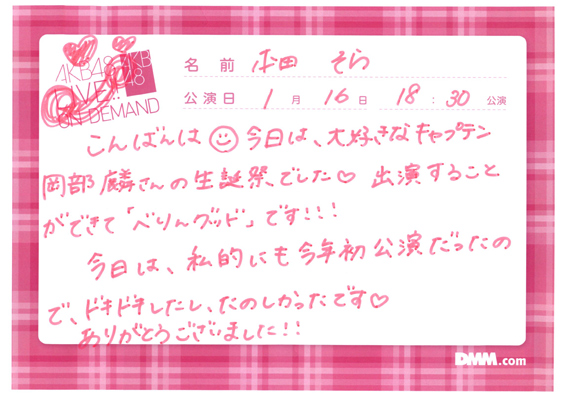 AKB48
LIVE!!
ON DEMAND
AKB
48
名前 本田 そら
公演日 1月 16日 18:30 公演
こんばんは 今日は、大好きなキャプテン
岡部麟さんの生誕祭でした♡ 出演すること
ができて「べりんグッド」です!!!
今日は、私的にも今年初公演だったの
で、ドキドキしたし、たのしかったです♡
ありがとうございました!!
DMM.com